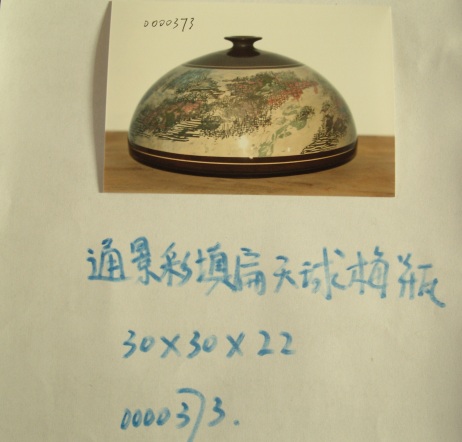 0000373
通景彩填扁天球梅瓶
30×30×22
0000373.